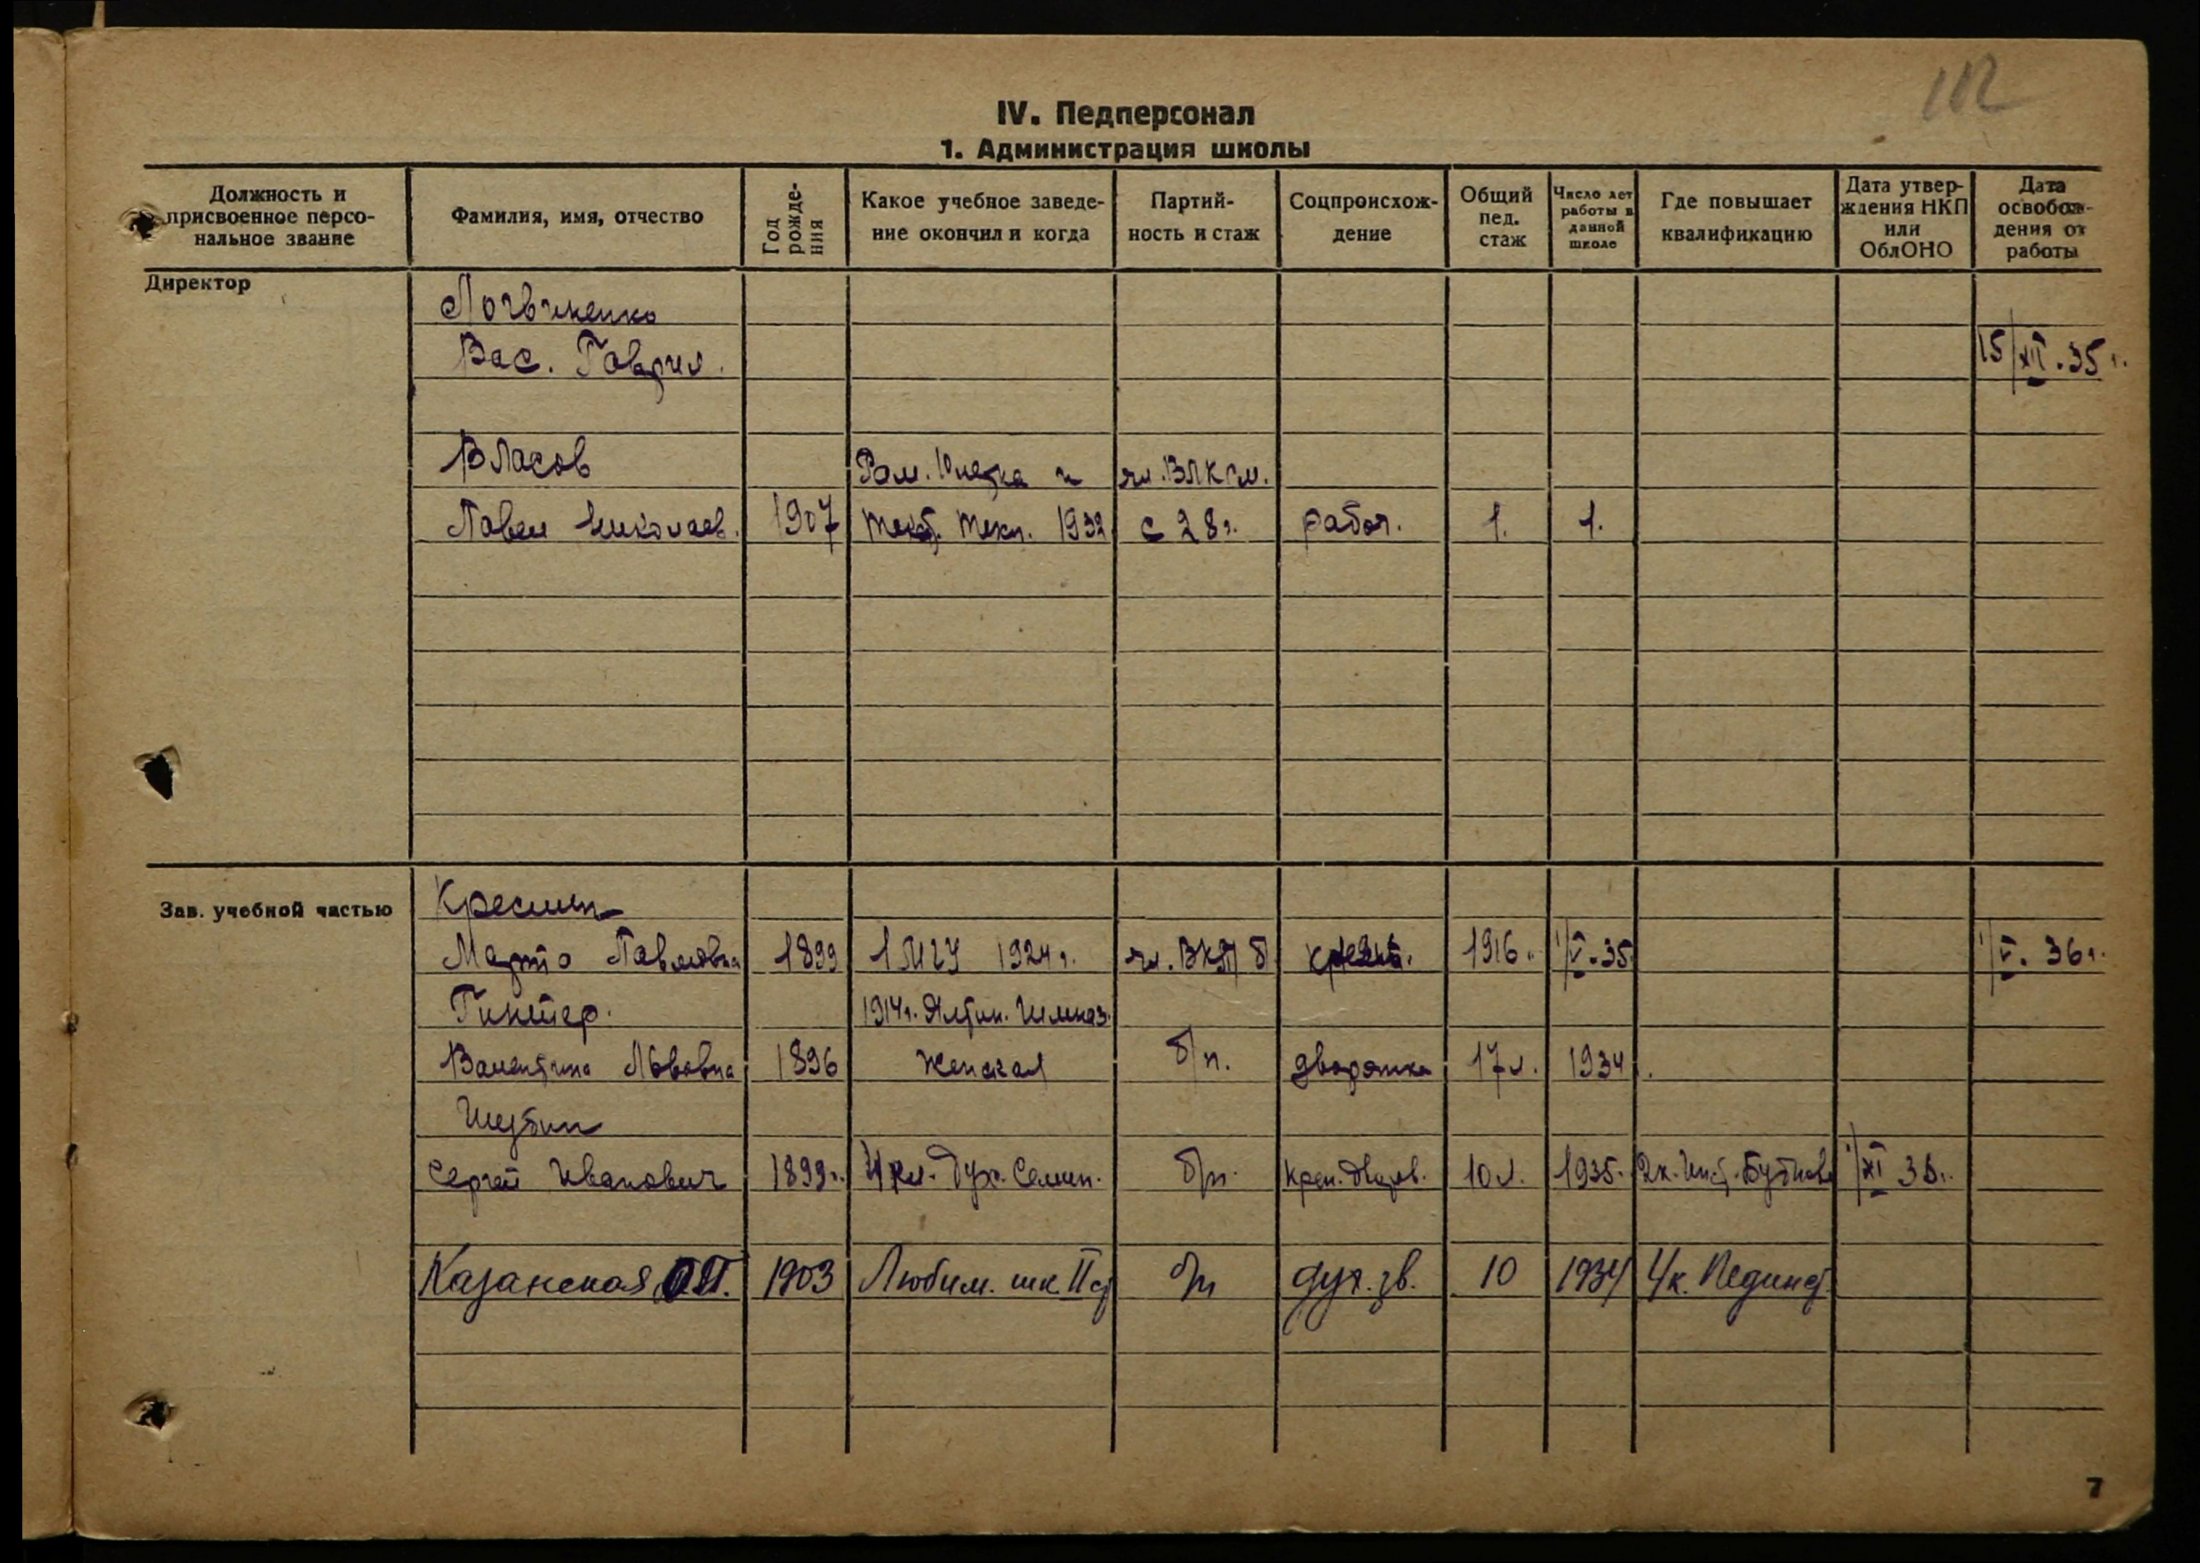 112
IV. Педперсонал
1. Администрация школы
Должность и присвоенное персональное звание
Фамилия, имя, отчество
Год рождения
Какое учебное заведение окончил и когда
Партийность и стаж
Соцпроисхождение
Общий пед. стаж
Число лет работы в данной школе
Где повышает квалификацию
Дата утверждения НКП или ОблОНО
Дата освобождения от работы
Директор
Логвиненко
Вас. Гаврил. 15/XII.35 г.
Власов чл. ВЛКСМ.
Павел Николаев. 1907 текст. техн. 1932 с 28 г. рабоч. 1. 1.
Зав. учебной частью
Кресин
Марта Павловна 1899 1 МГУ 1924 г. чл. ВКП б крест. 1916 г. 1/V.35 1/V. 36 г.
Гинтер. 1914 г. Ялтин. Гимназ.
Валентина Львовна 1896 женская б/п. дворянка 17 л. 1934
Шубин
Сергей Иванович 1899 г. 4 кл. Дух. Семин. б/п. 10 л. 1935 2 к. Инст. Бубнова 1/XI
Казанская О.П. 1903 Любим. шк. II ст б/п дух. зв. 10 1934 4 к. Пединст.
7